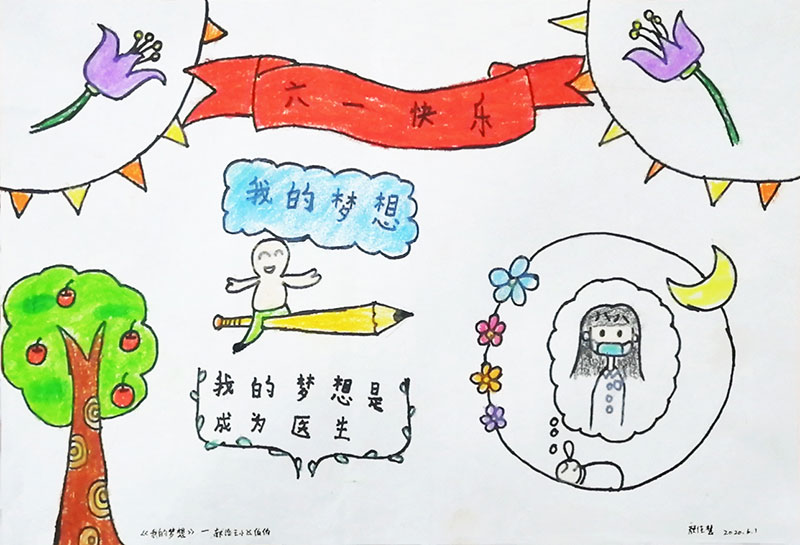 六一快乐
我的梦想
我的梦想是
成为医生
《我的梦想》一
2020.6.1